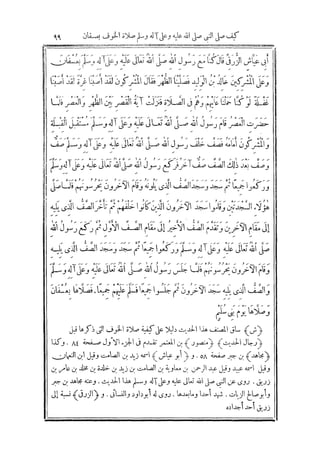 كيف صلى النبي صلى الله عليه وعلى آله وسلم صلاة الخوف بعسفان ٩٩
أَبِى عَيَّاشٍ الزُّرَقِىِّ قَالَ كُنَّا مَعَ رَسُولِ اللهِ صَلَّى اللهُ تَعَالَى عَلَيْهِ وَعَلَى آلِهِ وَسَلَّمَ بِعُسْفَانَ
وَعَلَى الْمُشْرِكِينَ خَالِدُ بْنُ الْوَلِيدِ فَصَلَّيْنَا الظُّهْرَ فَقَالَ الْمُشْرِكُونَ لَقَدْ أَصَبْنَا غِرَّةً لَقَدْ أَصَبْنَا
غَفْلَةً لَوْ كُنَّا حَمَلْنَا عَلَيْهِمْ وَهُمْ فِى الصَّلَاةِ فَنَزَلَتْ آيَةُ الْقَصْرِ بَيْنَ الظُّهْرِ وَالْعَصْرِ فَلَمَّا
حَضَرَتِ الْعَصْرُ قَامَ رَسُولُ اللهِ صَلَّى اللهُ تَعَالَى عَلَيْهِ وَعَلَى آلِهِ وَسَلَّمَ مُسْتَقْبِلَ الْقِبْلَةِ
وَالْمُشْرِكُونَ أَمَامَهُ فَصَفَّ خَلْفَ رَسُولِ اللهِ صَلَّى اللهُ تَعَالَى عَلَيْهِ وَعَلَى آلِهِ وَسَلَّمَ صَفٌّ
وَصَفَّ بَعْدَ ذَلِكَ الصَّفِّ صَفٌّ آخَرُ فَرَكَعَ رَسُولُ اللهِ صَلَّى اللهُ تَعَالَى عَلَيْهِ وَعَلَى آلِهِ وَسَلَّمَ
وَرَكَعُوا جَمِيعًا ثُمَّ سَجَدَ وَسَجَدَ الصَّفُّ الَّذِى يَلُونَهُ وَقَامَ الْآخَرُونَ يَحْرُسُونَهُمْ فَلَمَّا صَلَّى
هَؤُلَاءِ السَّجْدَتَيْنِ وَقَامُوا سَجَدَ الْآخَرُونَ الَّذِينَ كَانُوا خَلْفَهُمْ ثُمَّ تَأَخَّرَ الصَّفُّ الَّذِى يَلِيهِ
إِلَى مَقَامِ الْآخَرِينَ وَتَقَدَّمَ الصَّفُّ الْأَخِيرُ إِلَى مَقَامِ الصَّفِّ الْأَوَّلِ ثُمَّ رَكَعَ رَسُولُ اللهِ
صَلَّى اللهُ تَعَالَى عَلَيْهِ وَعَلَى آلِهِ وَسَلَّمَ وَرَكَعُوا جَمِيعًا ثُمَّ سَجَدَ وَسَجَدَ الصَّفُّ الَّذِى يَلِيهِ
وَقَامَ الْآخَرُونَ يَحْرُسُونَهُمْ فَلَمَّا جَلَسَ رَسُولُ اللهِ صَلَّى اللهُ تَعَالَى عَلَيْهِ وَعَلَى آلِهِ وَسَلَّمَ
وَالصَّفُّ الَّذِى يَلِيهِ سَجَدَ الْآخَرُونَ ثُمَّ جَلَسُوا جَمِيعًا فَسَلَّمَ عَلَيْهِمْ جَمِيعًا، فَصَلَّاهَا بِعُسْفَانَ
وَصَلَّاهَا يَوْمَ بَنِى سُلَيْمٍ
﴿ش﴾ ساق المصنف هذا الحديث دليلا على كيفية صلاة الخوف التى ذكرها قبل
﴿رجال الحديث﴾ ﴿منصور﴾ بن المعتمر تقدم فى الجزء الأول صفحة ٨٤. وكذا
﴿مجاهد﴾ بن جبر صفحة ٥٨. و ﴿أبو عياش﴾ اسمه زيد بن الصامت وقيل ابن النعمان
وقيل اسمه عبيد وقيل عبد الرحمن بن معاوية بن الصامت بن زيد بن خلدة بن مخلد بن عامر بن
زريق. روى عن النبى صلى الله تعالى عليه وعلى آله وسلم هذا الحديث. وعنه مجاهد بن جبر
وأبو صالح الزيات. شهد أحدا ومابعدها. روى له أبوداود والنسائى. و ﴿الزرقى﴾ نسبة إلى
زريق أحد أجداده